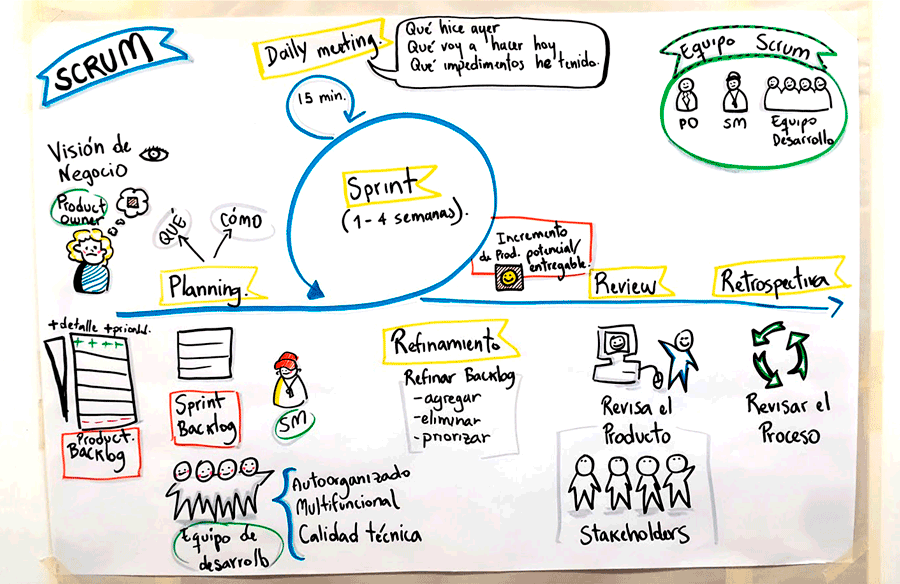 SCRUM
Daily meeting.
Qué hice ayer
Qué voy a hacer hoy
Qué impedimentos he tenido.
15 min.
Equipo Scrum
PO
SM
Equipo
Desarrollo
Visión de
Negocio
Product
owner
QUÉ
CÓMO
Planning.
Sprint
(1-4 semanas).
Incremento
de Prod. potencial/
entregable.
Review
Retrospectiva
+detalle +priorid.
Product.
Backlog
Sprint
Backlog
SM
Refinamiento
Refinar Backlog
-agregar
-eliminar
-priorizar
Revisa el
Producto
Revisar el
Proceso
Equipo de
desarrollo
Autoorganizado
Multifuncional
Calidad técnica
Stakeholders